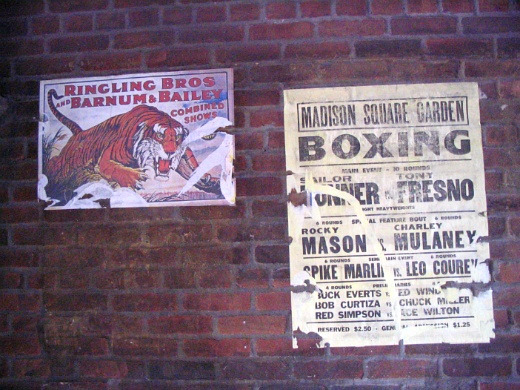 RINGLING BROS
AND BARNUM & BAILEY
COMBINED
SHOWS
MADISON SQUARE GARDEN
BOXING
MAIN EVENT - 10 ROUNDS
SAILOR TONY
FRESNO
6 ROUNDS SPECIAL FEATURE BOUT 6 ROUNDS
ROCKY CHARLEY
MASON VS. MULANEY
6 ROUNDS SEMI MAIN EVENT 6 ROUNDS
SPIKE MARLI VS. LEO COUREY
4 ROUNDS 4 ROUNDS
BUCK EVERTS ED WIND
BOB CURTIZA CHUCK MILLER
RED SIMPSON ACE WILTON
RESERVED $2.50 - GENERAL ADMISSION $1.25